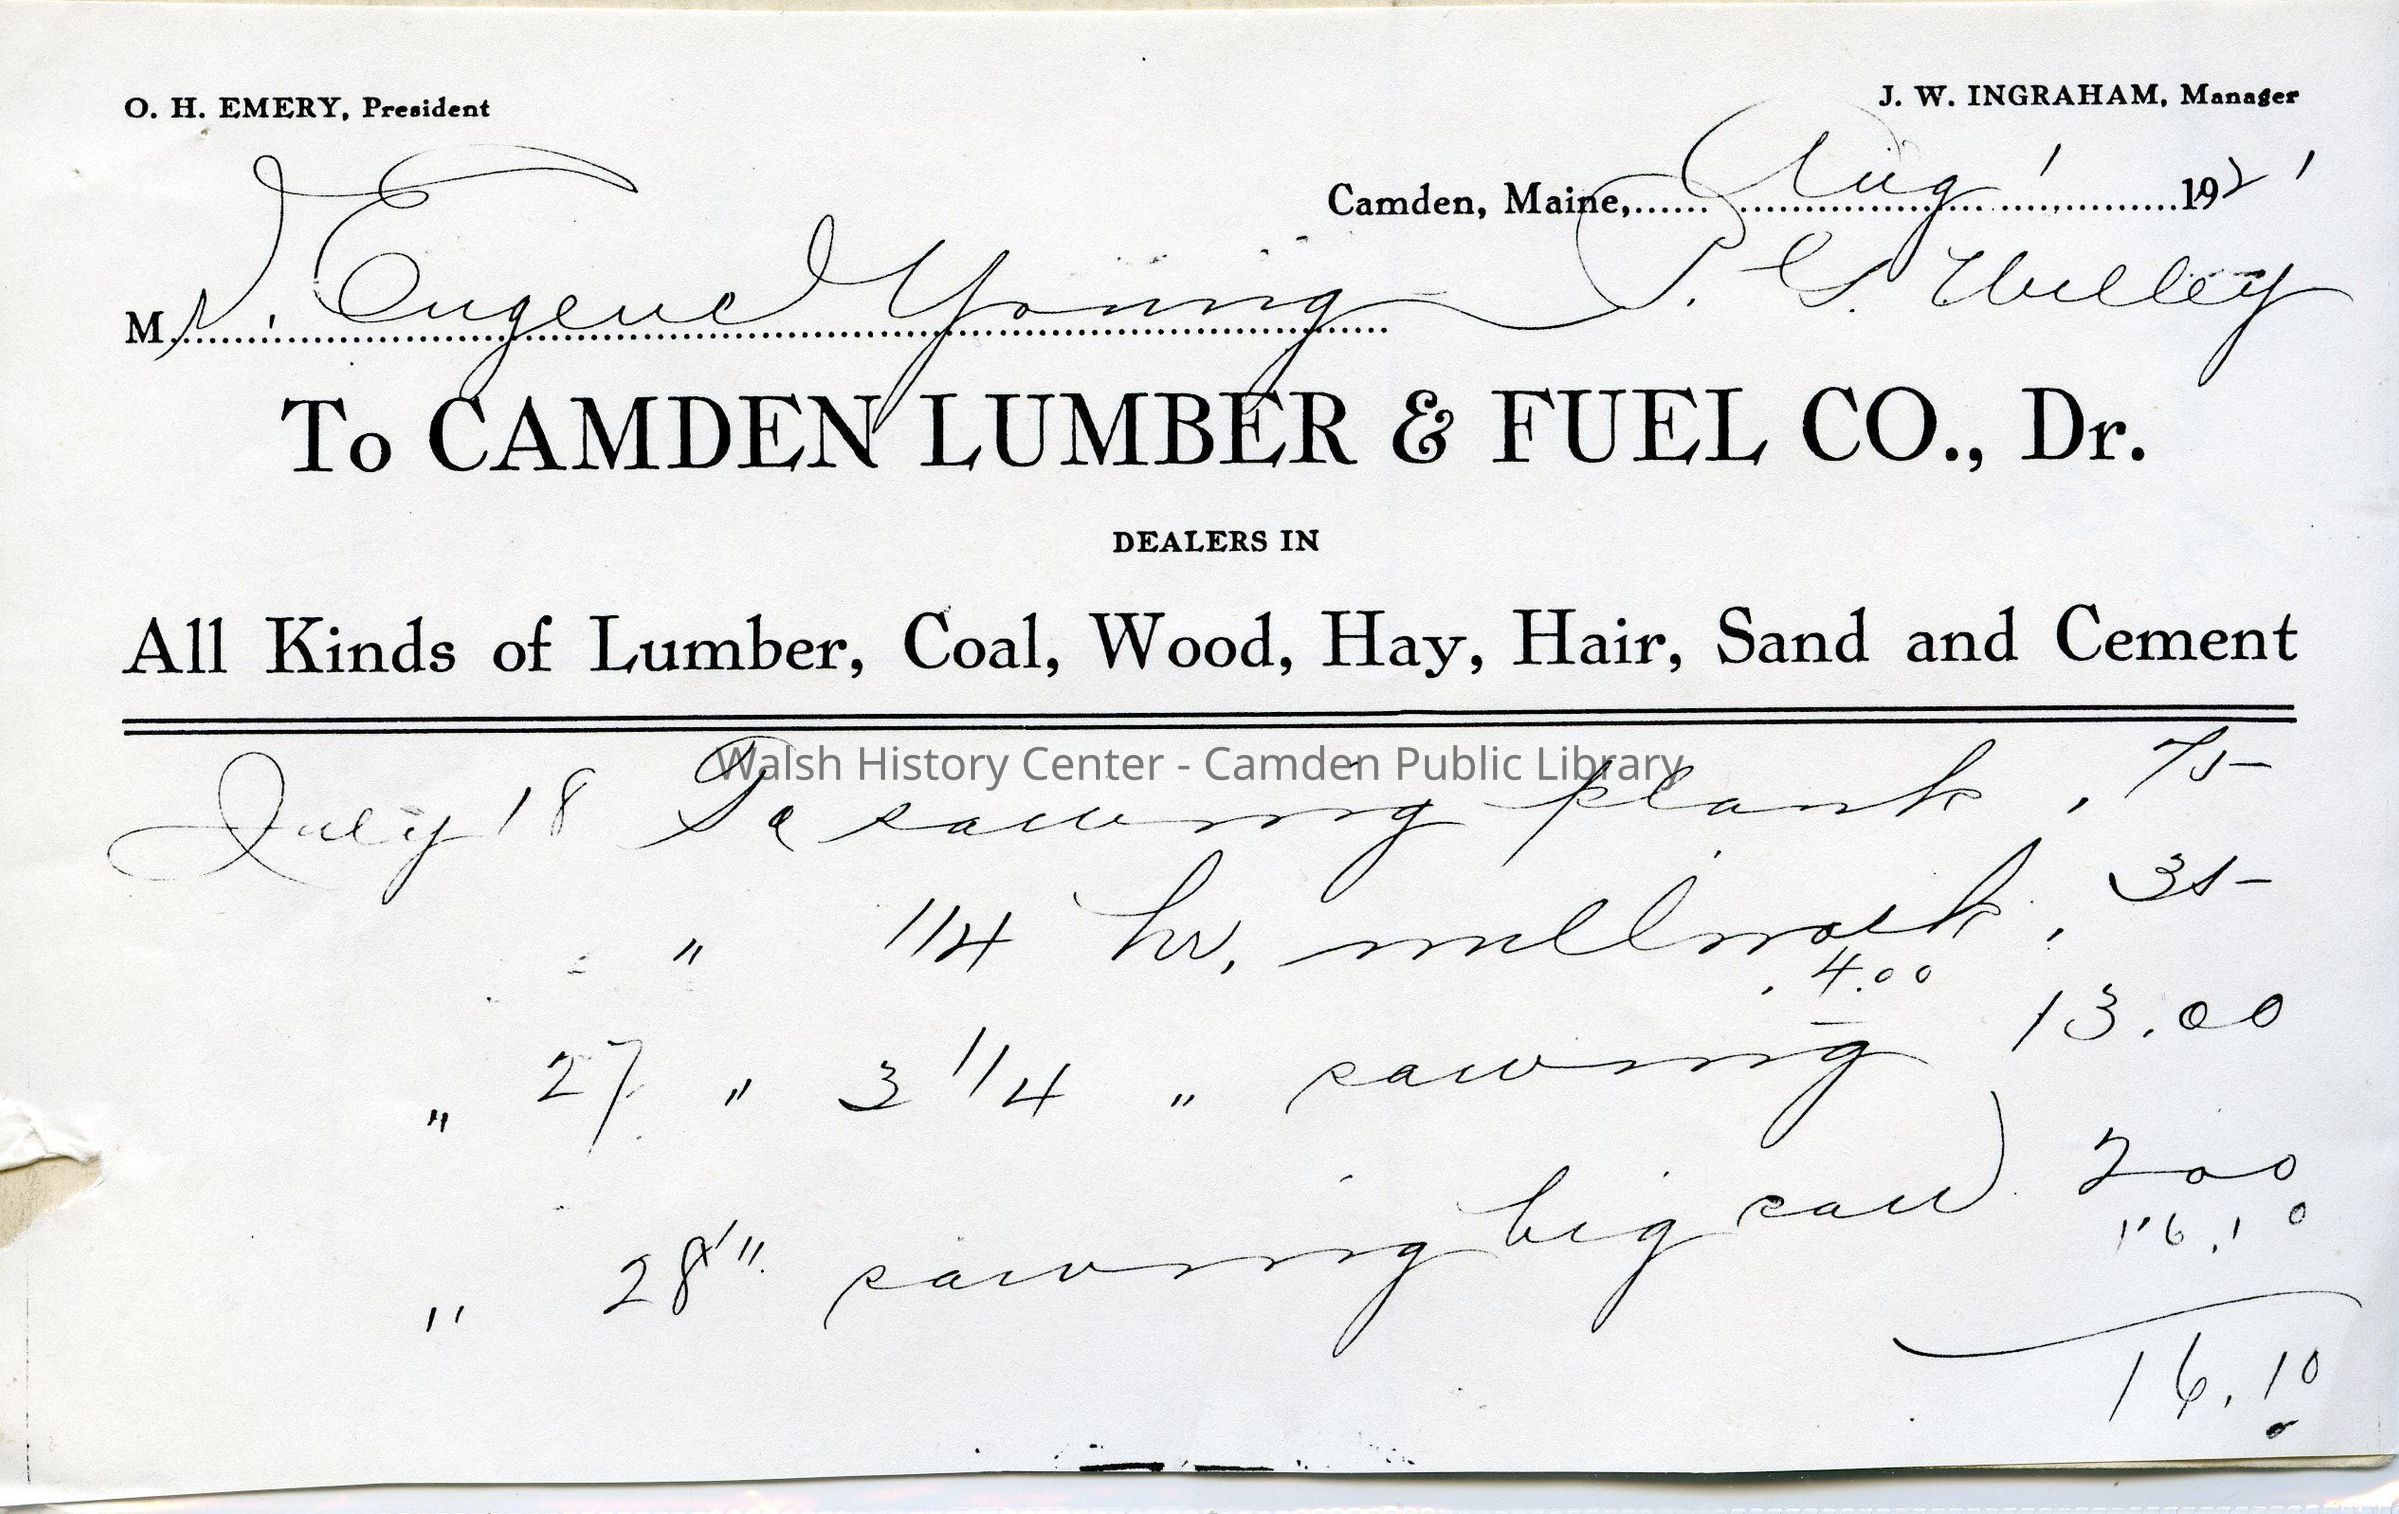 O. H. EMERY, President
J. W. INGRAHAM, Manager
Camden, Maine, Aug 1 1921
Mr. Eugene Young P. G. Willey
To CAMDEN LUMBER & FUEL CO., Dr.
DEALERS IN
All Kinds of Lumber, Coal, Wood, Hay, Hair, Sand and Cement
Walsh History Center - Camden Public Library
July 18 To sawing plank .75
" 1/4 hr. millwork .35
4.00
" 27 " 3 1/4 " sawing 13.00
" 28 " sawing big saw 2 00
16.10
16.10